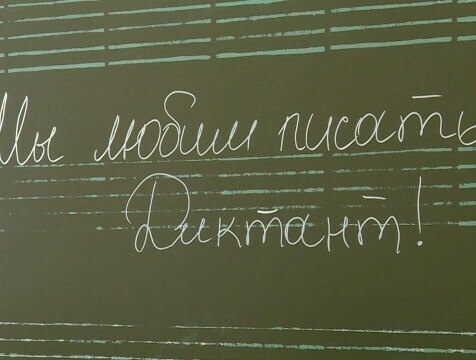 Мы любим писать
Диктант!